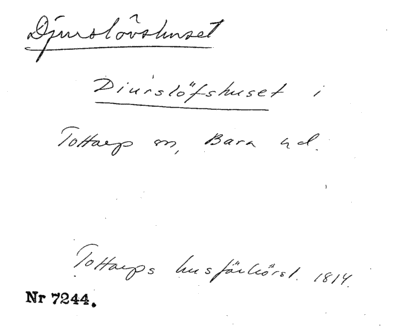 Djurslövshuset
Diurslöfshuset i
Tottarp sn, Bara hd.
Tottarps husförhörsl. 1814.
Nr 7244.